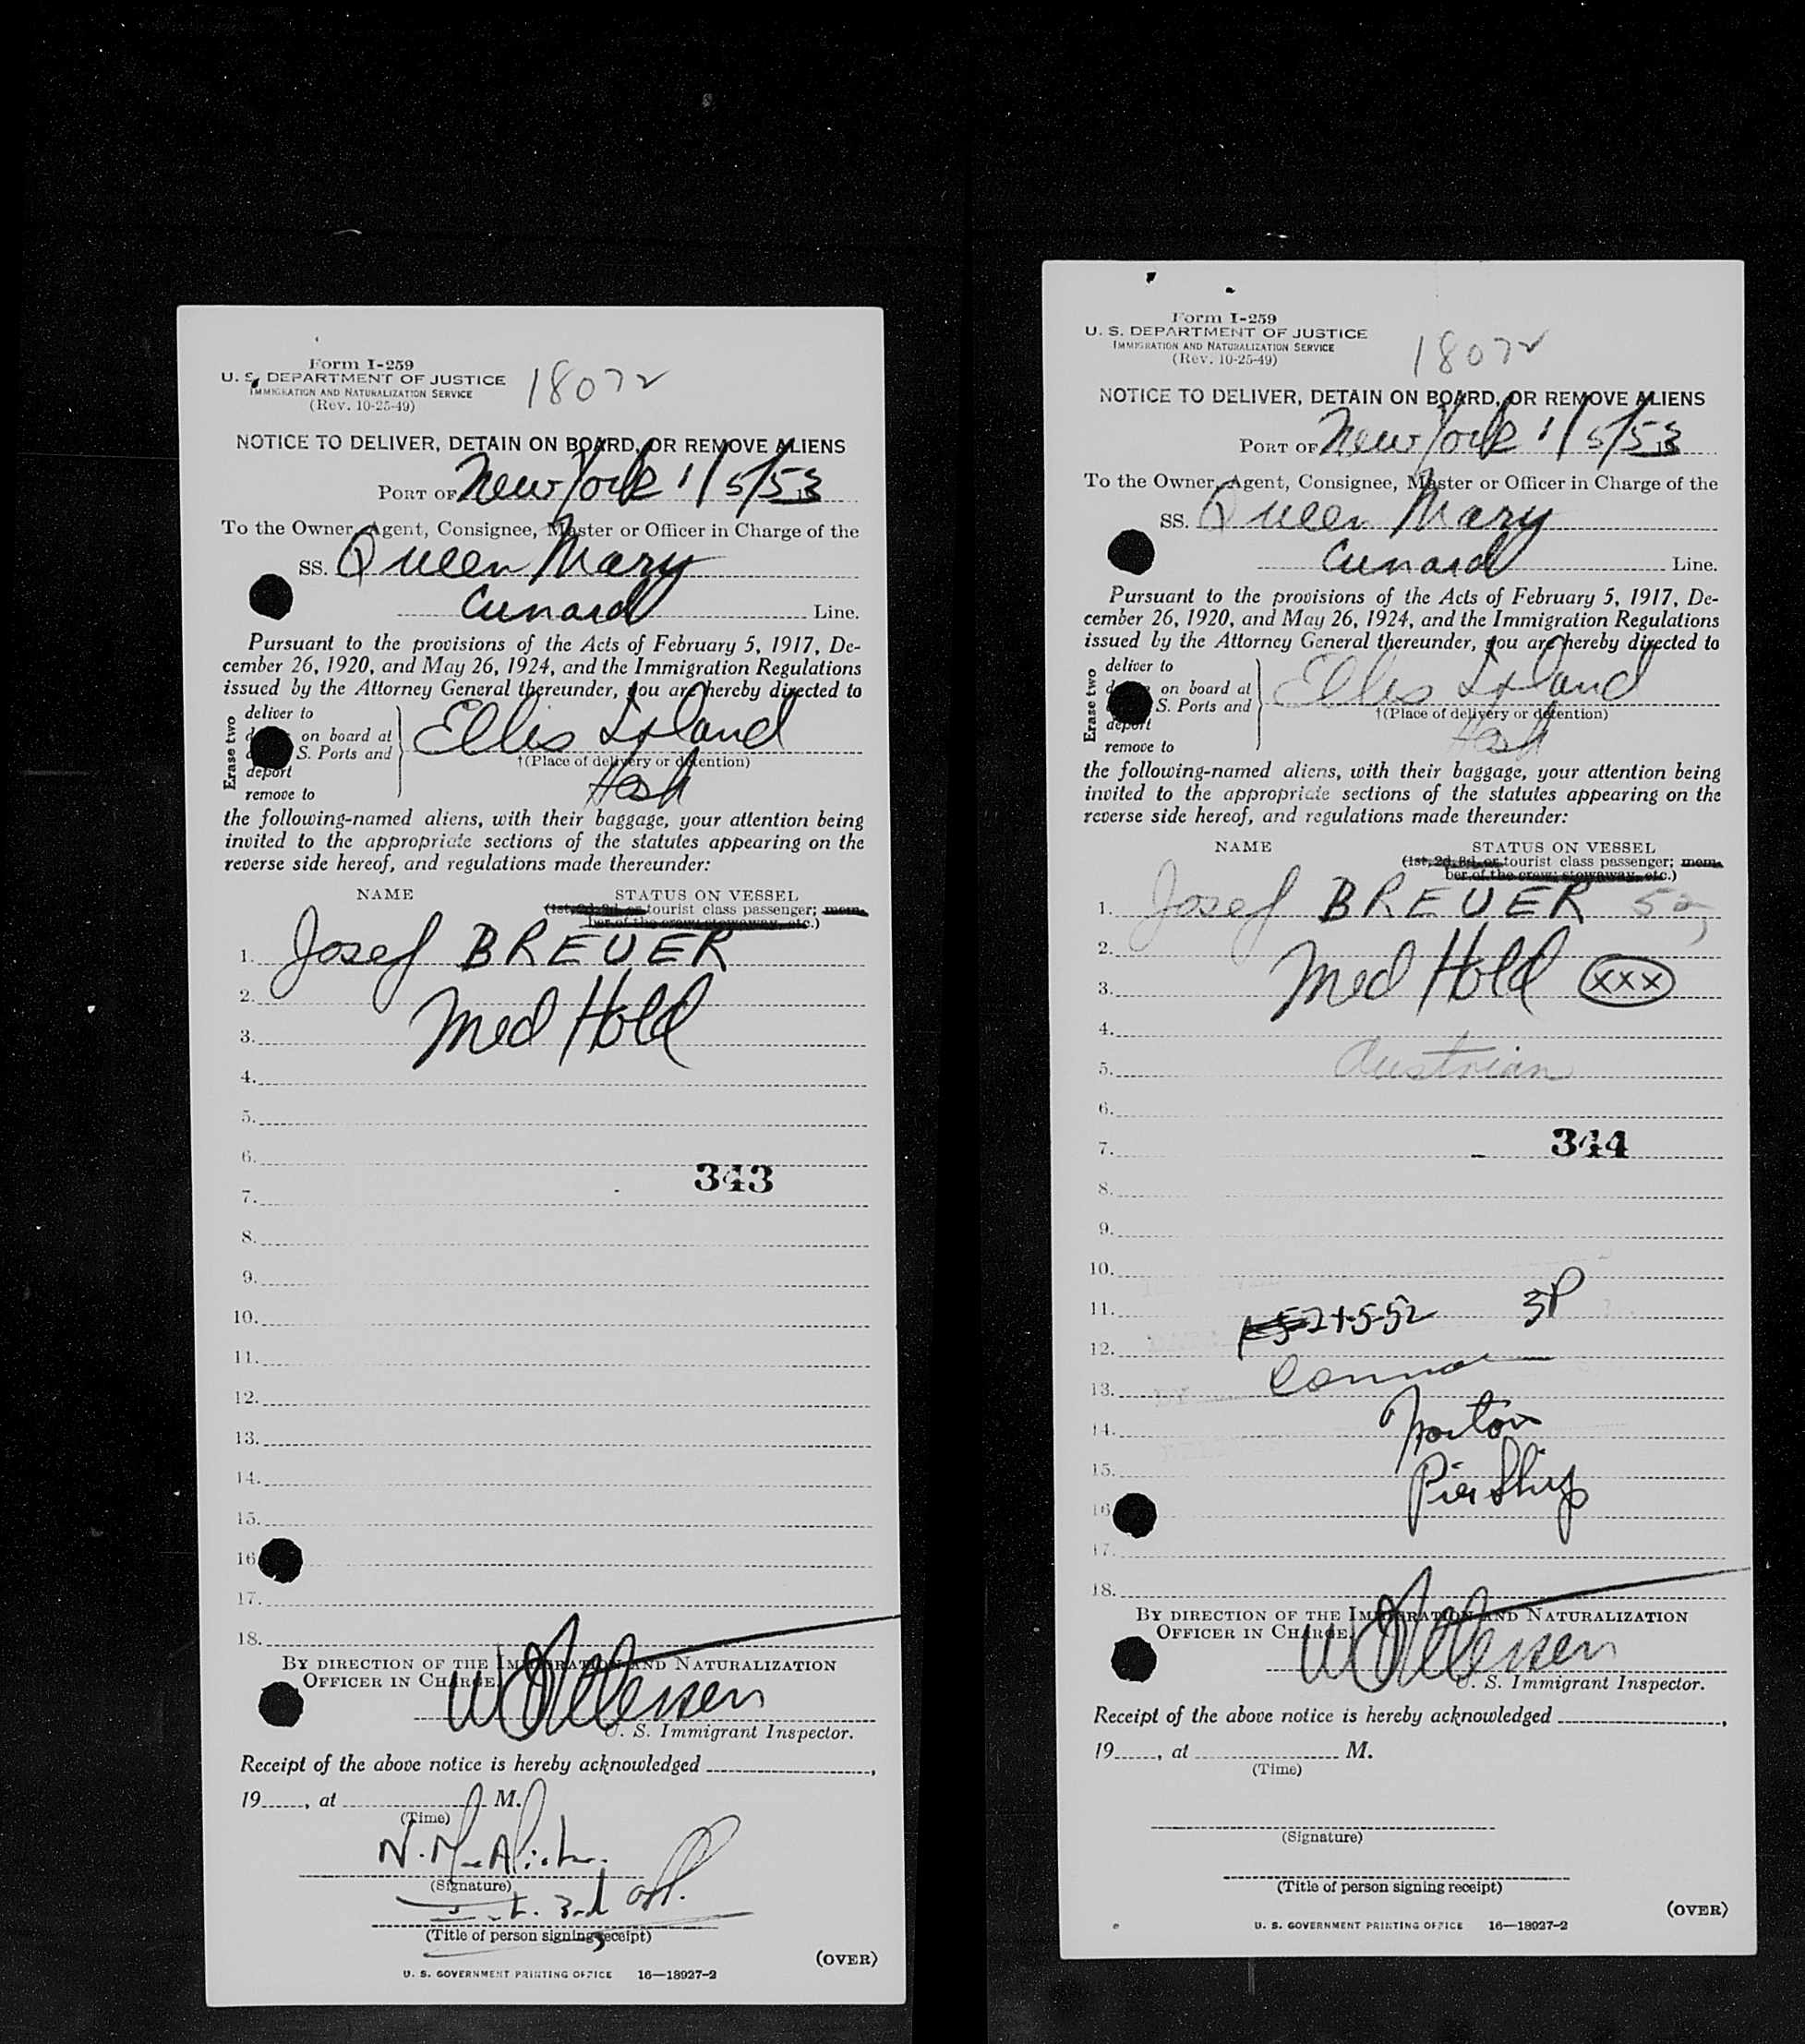 Form I-259
U. S. DEPARTMENT OF JUSTICE
IMMIGRATION AND NATURALIZATION SERVICE
(Rev. 10-25-49)
18072
NOTICE TO DELIVER, DETAIN ON BOARD, OR REMOVE ALIENS
PORT OF New York 1/5/53
To the Owner, Agent, Consignee, Master or Officer in Charge of the
SS. Queen Mary
Cunard Line.
Pursuant to the provisions of the Acts of February 5, 1917, De-
cember 26, 1920, and May 26, 1924, and the Immigration Regulations
issued by the Attorney General thereunder, you are hereby directed to
Erase two
deliver to
on board at
S. Ports and
deport
remove to
Ellis Island
†(Place of delivery or detention)
Hosp
the following-named aliens, with their baggage, your attention being
invited to the appropriate sections of the statutes appearing on the
reverse side hereof, and regulations made thereunder:
NAME STATUS ON VESSEL
(1st, 2d, 3d, or tourist class passenger; mem-
ber of the crew; stowaway, etc.)
1. Josef BREUER
2.
3. Med Hold
4.
5.
6.
343
7.
8.
9.
10.
11.
12.
13.
14.
15.
16
17.
18.
BY DIRECTION OF THE IMMIGRATION AND NATURALIZATION
OFFICER IN CHARGE.
U. S. Immigrant Inspector.
Receipt of the above notice is hereby acknowledged
19 , at M.
(Time)
(Signature)
3rd
(Title of person signing receipt)
(OVER)
U. S. GOVERNMENT PRINTING OFFICE 16—18927-2
Form I-259
U. S. DEPARTMENT OF JUSTICE
IMMIGRATION AND NATURALIZATION SERVICE
(Rev. 10-25-49)
18072
NOTICE TO DELIVER, DETAIN ON BOARD, OR REMOVE ALIENS
PORT OF New York 1/5/53
To the Owner, Agent, Consignee, Master or Officer in Charge of the
SS. Queen Mary
Cunard Line.
Pursuant to the provisions of the Acts of February 5, 1917, De-
cember 26, 1920, and May 26, 1924, and the Immigration Regulations
issued by the Attorney General thereunder, you are hereby directed to
Erase two
deliver to
on board at
S. Ports and
deport
remove to
Ellis Island
†(Place of delivery or detention)
Hosp
the following-named aliens, with their baggage, your attention being
invited to the appropriate sections of the statutes appearing on the
reverse side hereof, and regulations made thereunder:
NAME STATUS ON VESSEL
(1st, 2d, 3d, or tourist class passenger; mem-
ber of the crew; stowaway, etc.)
1. Josef BREUER 52
2.
3. Med Hold XXX
4.
5. Austrian
6.
7. 344
8.
9.
10.
11. 3P
12.
13.
14. Norton
15.
16
17.
18.
BY DIRECTION OF THE IMMIGRATION AND NATURALIZATION
OFFICER IN CHARGE.
U. S. Immigrant Inspector.
Receipt of the above notice is hereby acknowledged
19 , at M.
(Time)
(Signature)
(Title of person signing receipt)
(OVER)
U. S. GOVERNMENT PRINTING OFFICE 16—18927-2